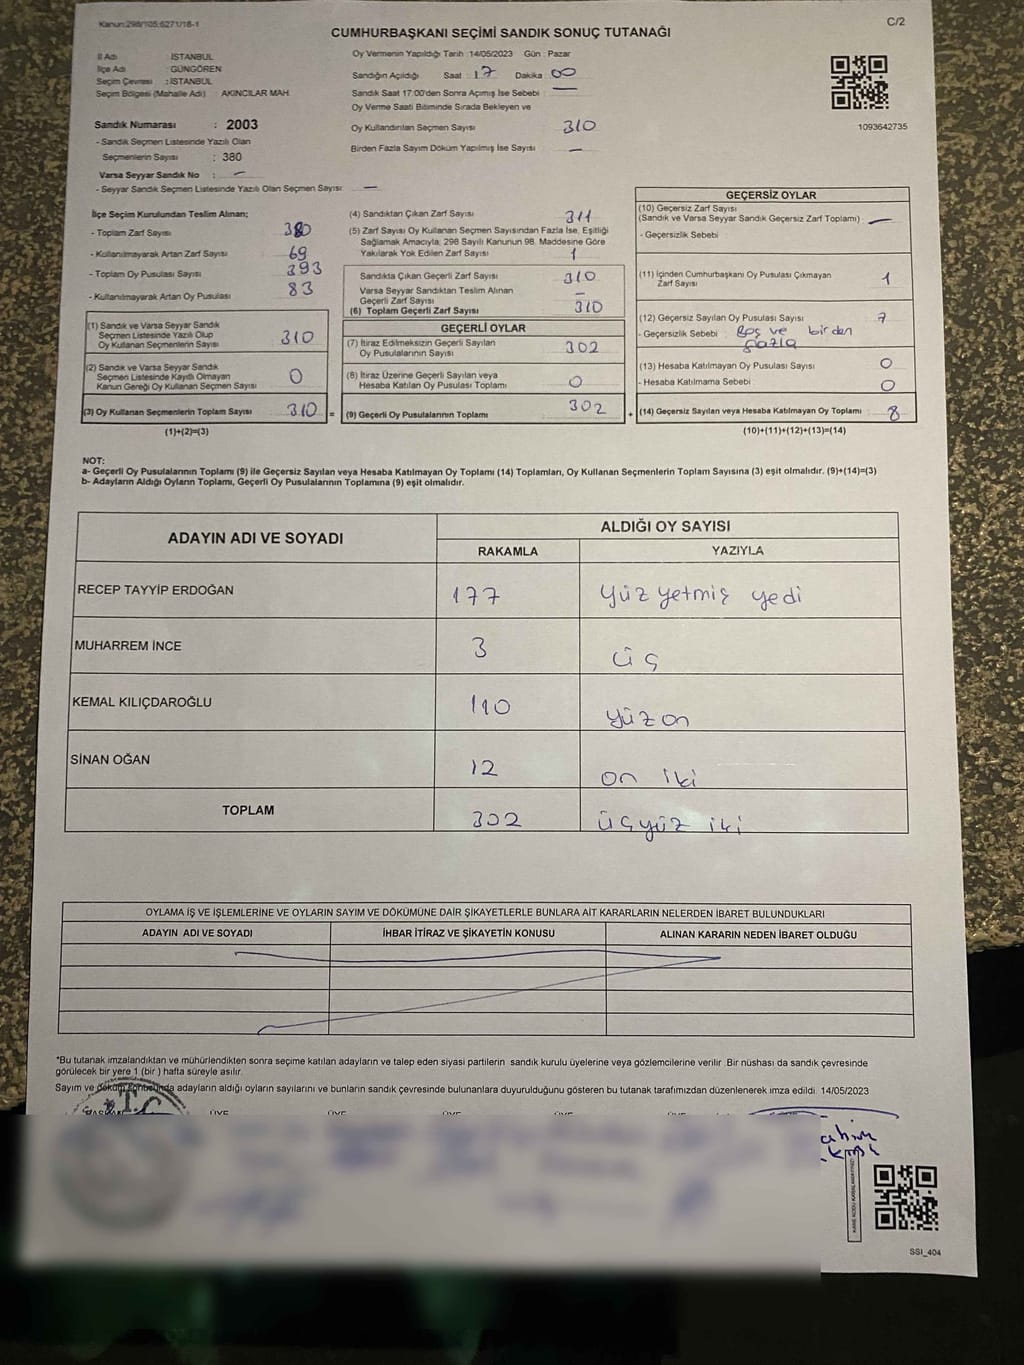 Kanun:298/105;6271/18-1
C/2
CUMHURBAŞKANI SEÇİMİ SANDIK SONUÇ TUTANAĞI
İl Adı : İSTANBUL
İlçe Adı : GÜNGÖREN
Seçim Çevresi : İSTANBUL
Seçim Bölgesi (Mahalle Adı) : AKINCILAR MAH.
Sandık Numarası : 2003
- Sandık Seçmen Listesinde Yazılı Olan
Seçmenlerin Sayısı : 380
Varsa Seyyar Sandık No : —
- Seyyar Sandık Seçmen Listesinde Yazılı Olan Seçmen Sayısı: —
Oy Vermenin Yapıldığı Tarih :14/05/2023 Gün : Pazar
Sandığın Açıldığı Saat : 17 Dakika : 00
Sandık Saat 17:00'den Sonra Açımış İse Sebebi : —
Oy Verme Saati Bitiminde Sırada Bekleyen ve
Oy Kullandırılan Seçmen Sayısı 310
Birden Fazla Sayım Döküm Yapılmış İse Sayısı —
1093642735
İlçe Seçim Kurulundan Teslim Alınan;
- Toplam Zarf Sayısı 380
- Kullanılmayarak Artan Zarf Sayısı 69
- Toplam Oy Pusulası Sayısı 393
- Kullanılmayarak Artan Oy Pusulası 83
(1) Sandık ve Varsa Seyyar Sandık
Seçmen Listesinde Yazılı Olup
Oy Kullanan Seçmenlerin Sayısı 310
(2) Sandık ve Varsa Seyyar Sandık
Seçmen Listesinde Kayıtlı Olmayan
Kanun Gereği Oy Kullanan Seçmen Sayısı 0
(3) Oy Kullanan Seçmenlerin Toplam Sayısı 310 =
(1)+(2)=(3)
(4) Sandıktan Çıkan Zarf Sayısı 311
(5) Zarf Sayısı Oy Kullanan Seçmen Sayısından Fazla İse, Eşitliği
Sağlamak Amacıyla, 298 Sayılı Kanunun 98. Maddesine Göre
Yakılarak Yok Edilen Zarf Sayısı 1
Sandıkta Çıkan Geçerli Zarf Sayısı 310
Varsa Seyyar Sandıktan Teslim Alınan
Geçerli Zarf Sayısı —
(6) Toplam Geçerli Zarf Sayısı 310
GEÇERLİ OYLAR
(7) İtiraz Edilmeksizin Geçerli Sayılan
Oy Pusulalarının Sayısı 302
(8) İtiraz Üzerine Geçerli Sayılan veya
Hesaba Katılan Oy Pusulası Toplamı 0
(9) Geçerli Oy Pusulalarının Toplamı 302 +
GEÇERSİZ OYLAR
(10) Geçersiz Zarf Sayısı
(Sandık ve Varsa Seyyar Sandık Geçersiz Zarf Toplamı) : —
- Geçersizlik Sebebi
(11) İçinden Cumhurbaşkanı Oy Pusulası Çıkmayan
Zarf Sayısı 1
(12) Geçersiz Sayılan Oy Pusulası Sayısı 7
- Geçersizlik Sebebi : Boş ve birden
fazla
(13) Hesaba Katılmayan Oy Pusulası Sayısı 0
- Hesaba Katılmama Sebebi 0
(14) Geçersiz Sayılan veya Hesaba Katılmayan Oy Toplamı 8
(10)+(11)+(12)+(13)=(14)
NOT:
a- Geçerli Oy Pusulalarının Toplamı (9) ile Geçersiz Sayılan veya Hesaba Katılmayan Oy Toplamı (14) Toplamları, Oy Kullanan Seçmenlerin Toplam Sayısına (3) eşit olmalıdır. (9)+(14)=(3)
b- Adayların Aldığı Oyların Toplamı, Geçerli Oy Pusulalarının Toplamına (9) eşit olmalıdır.
ADAYIN ADI VE SOYADI
ALDIĞI OY SAYISI
RAKAMLA YAZIYLA
RECEP TAYYİP ERDOĞAN 177 Yüz yetmiş yedi
MUHARREM İNCE 3 üç
KEMAL KILIÇDAROĞLU 110 yüz on
SİNAN OĞAN 12 on iki
TOPLAM 302 üçyüz iki
OYLAMA İŞ VE İŞLEMLERİNE VE OYLARIN SAYIM VE DÖKÜMÜNE DAİR ŞİKAYETLERLE BUNLARA AİT KARARLARIN NELERDEN İBARET BULUNDUKLARI
ADAYIN ADI VE SOYADI İHBAR İTİRAZ VE ŞİKAYETİN KONUSU ALINAN KARARIN NEDEN İBARET OLDUĞU
*Bu tutanak imzalandıktan ve mühürlendikten sonra seçime katılan adayların ve talep eden siyasi partilerin sandık kurulu üyelerine veya gözlemcilerine verilir. Bir nüshası da sandık çevresinde
görülecek bir yere 1 (bir ) hafta süreyle asılır.
Sayım ve döküm sonucunda adayların aldığı oyların sayılarını ve bunların sandık çevresinde bulunanlara duyurulduğunu gösteren bu tutanak tarafımızdan düzenlenerek imza edildi. 14/05/2023
T.C.
ÜYE ÜYE ÜYE ÜYE ÜYE
SSI_404